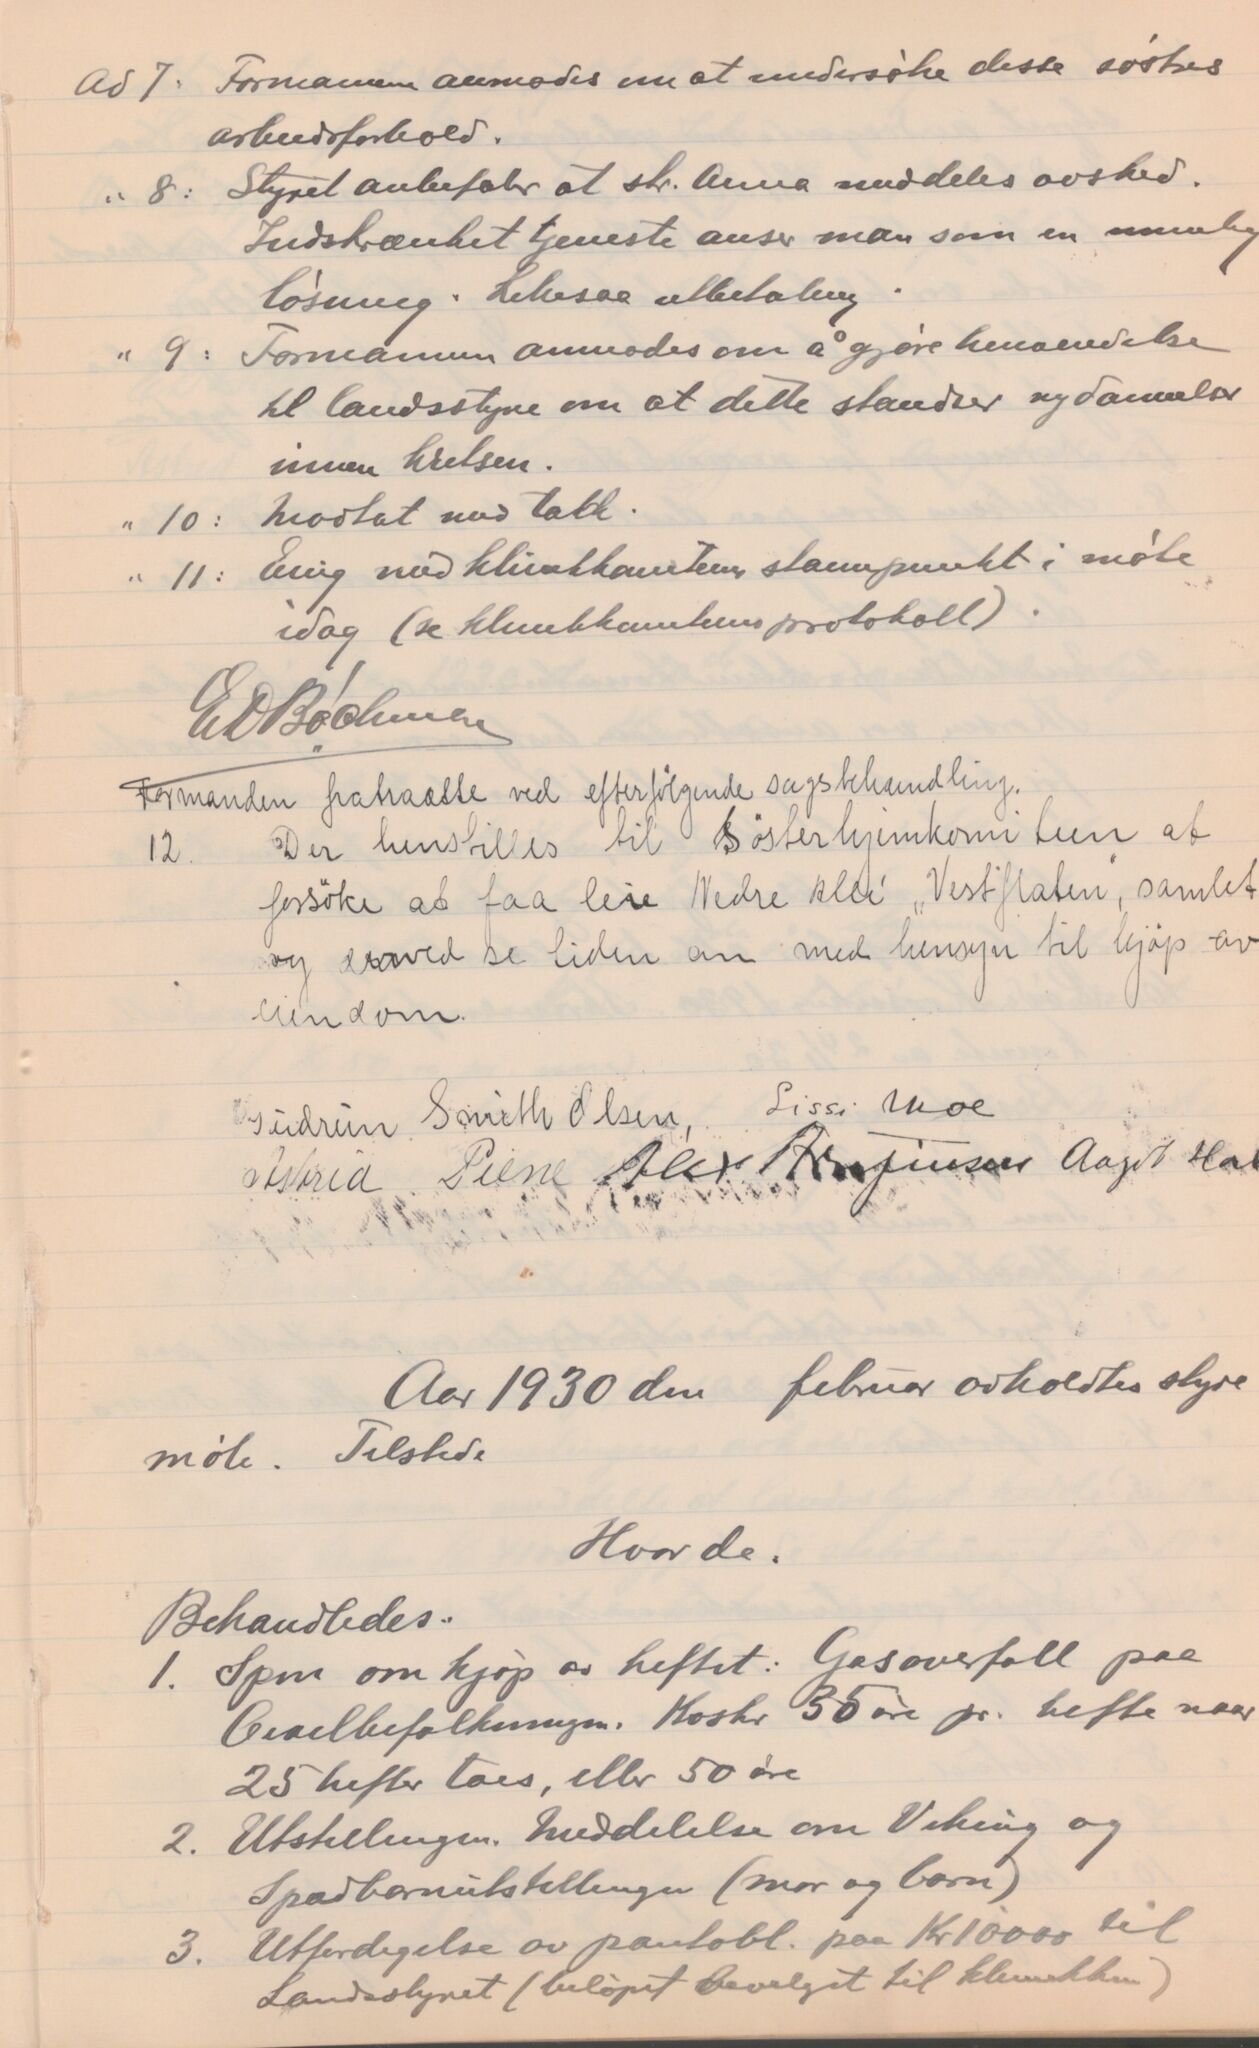 Ad 7: Formannen anmodes om at undersøke disse søstres
arbeidsforhold.
" 8: Styret anbefaler at str. Anna meddeles avsked.
Indskrænket tjeneste anser man som en umulig
løsning. Likesaa utbetaling.
" 9: Formannen anmodes om å gjøre henvendelse
til landsstyre om at dette standser nydannelser
innen kretsen.
" 10: Modtat med takk.
" 11: Enig med klinikkomiteens standpunkt i møte
idag (se klinikkomiteens protokoll).
Formanden fratraatte ved efterfølgende sagsbehandling.
12. Der henstilles til Søsterhjemkomiteen at
forsöke at faa leie Nedre Kleé "Vestflaten", samlet
og derved se tiden an med hensyn til kjøp av
eiendom.
Gudrun Smith Olsen, Lissi Moe
Astrid Piene Alex Aagot
Aar 1930 den februar avholdtes styre
møte. Tilstede
Hvorde.
Behandledes:
1. Spm om kjøp av heftet: Gasoverfall paa
Civilbefolkningen. Koster 35 øre pr. hefte naar
25 hefter taes, eller 50 øre
2. Utstillingen. Meddelelse om Viking og
Spædbarnutstillingen (mor og barn)
3. Utferdigelse av pantobl. paa Kr 10000 til
Landsstyret (beløpet bevilget til klinikken)